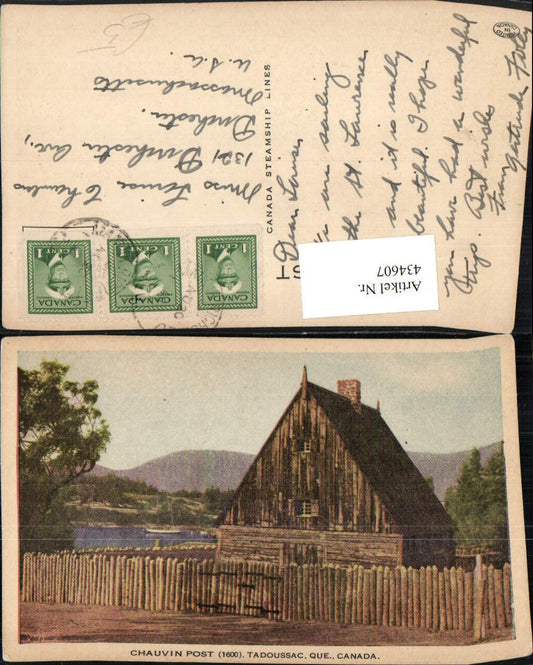 Dear Louise
We are sailing
the St. Lawrence
and it is really
beautiful. I hope
you have had a wonderful
trip. Best wishes
from
Gertrude Foley
CANADA STEAMSHIP LINES
Miss Louise
1321 Dorchester Ave.,
Dorchester
Massachusetts
U.S.A.
CANADA
1 CENT 1
CANADA
1 CENT 1
CANADA
1 CENT 1
Artikel Nr.
434607
ST
CHAUVIN POST (1600), TADOUSSAC, QUE., CANADA.